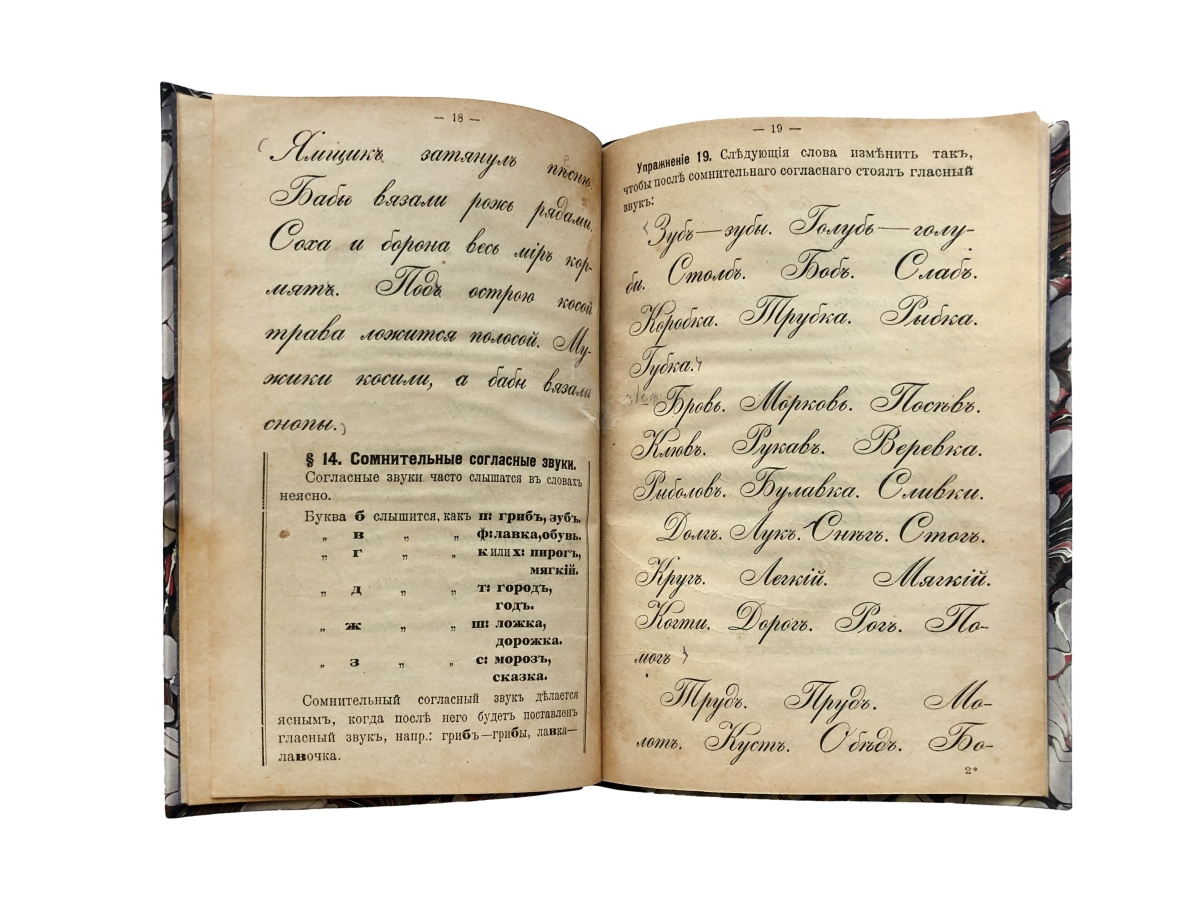 — 18 —
Ямщикъ затянулъ пѣсню.
Бабы вязали рожь рядами.
Соха и борона весь міръ кор-
мятъ. Подъ острою косой
трава ложится полосой. Му-
жики косили, а бабы вязали
снопы.
§ 14. Сомнительные согласные звуки.
Согласные звуки часто слышатся въ словахъ
неясно.
Буква б слышится, какъ п: грибъ, зубъ.
„ в „ „ ф: лавка, обувь.
„ г „ „ к или х: пирогъ,
мягкій.
„ д „ „ т: городъ,
годъ.
„ ж „ „ ш: ложка,
дорожка.
„ з „ „ с: морозъ,
сказка.
Сомнительный согласный звукъ дѣлается
яснымъ, когда послѣ него будетъ поставленъ
гласный звукъ, напр.: грибъ—грибы, лавка—
лавочка.
— 19 —
Упражненіе 19. Слѣдующія слова измѣнить такъ,
чтобы послѣ сомнительнаго согласнаго стоялъ гласный
звукъ:
Зубъ—зубы. Голубь—голу-
би. Столбъ. Бобъ. Слабъ.
Коробка. Трубка. Рыбка.
Губка.
Бровь. Морковь. Посѣвъ.
Клювъ. Рукавъ. Веревка.
Рыболовъ. Булавка. Сливки.
Долгъ. Лукъ. Снѣгъ. Стогъ.
Кругъ. Легкій. Мягкій.
Когти. Дорогъ. Рогъ. По-
могъ
Трудъ. Прудъ. Мо-
лотъ. Кустъ. Обѣдъ. Бо-
2*